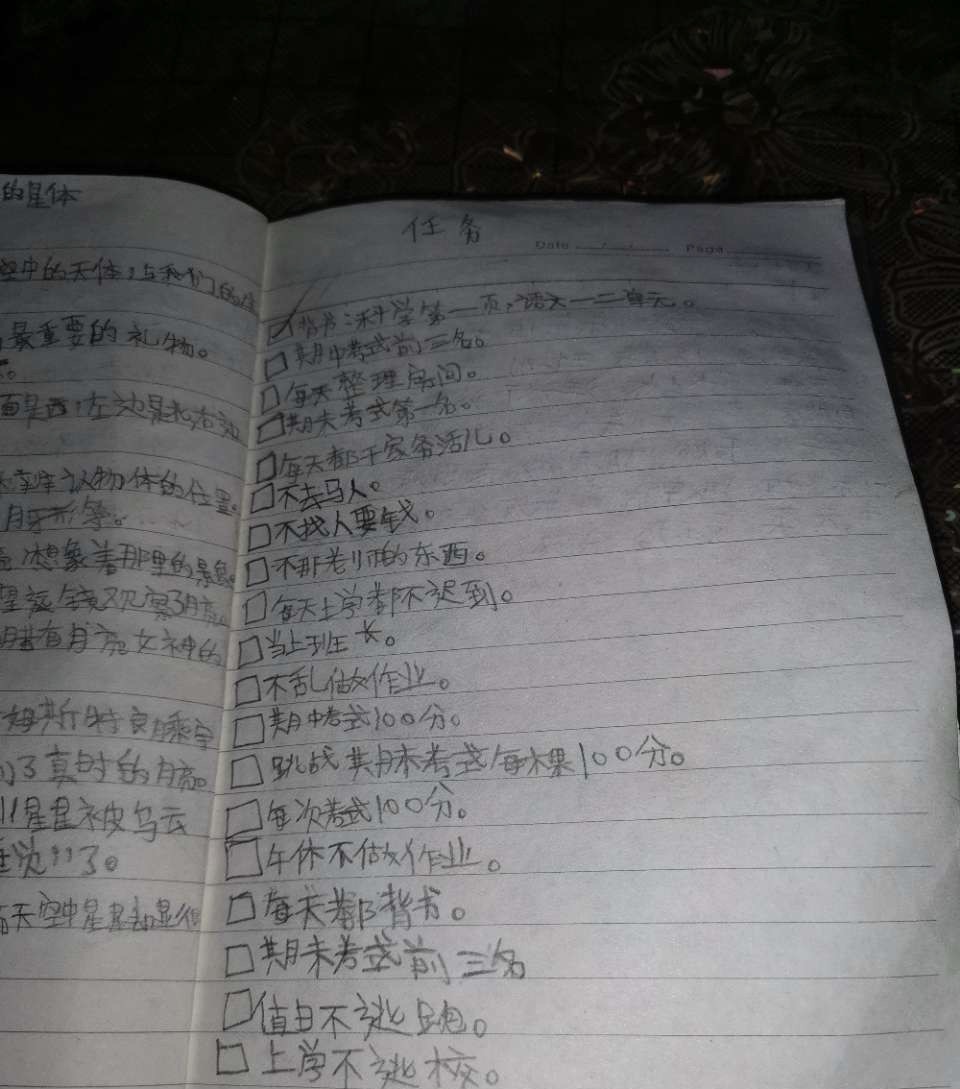 的星体
空中的天体,与我们的
最重要的礼物。
面是西,左边是北右边
认物体的位置。
月牙形等。
想象着那里的景色
月亮女神的
了真时的月亮。
星星被乌云
觉"了。
天空中星星却显得
任务
Date / / Page
背书:科学第一页,语文一二单元。
期中考式前三名。
每天整理房间。
期末考式第一名。
每天都干家务活儿。
不去马人。
不找人要钱。
不那老师的东西。
每天上学都不迟到。
当上班长。
不乱做作业。
期中考式100分。
跳战期末考式每木果100分。
每次考式100分。
午休不做作业。
每天都背书。
期末考式前三名
值日不逃跑。
上学不逃校。